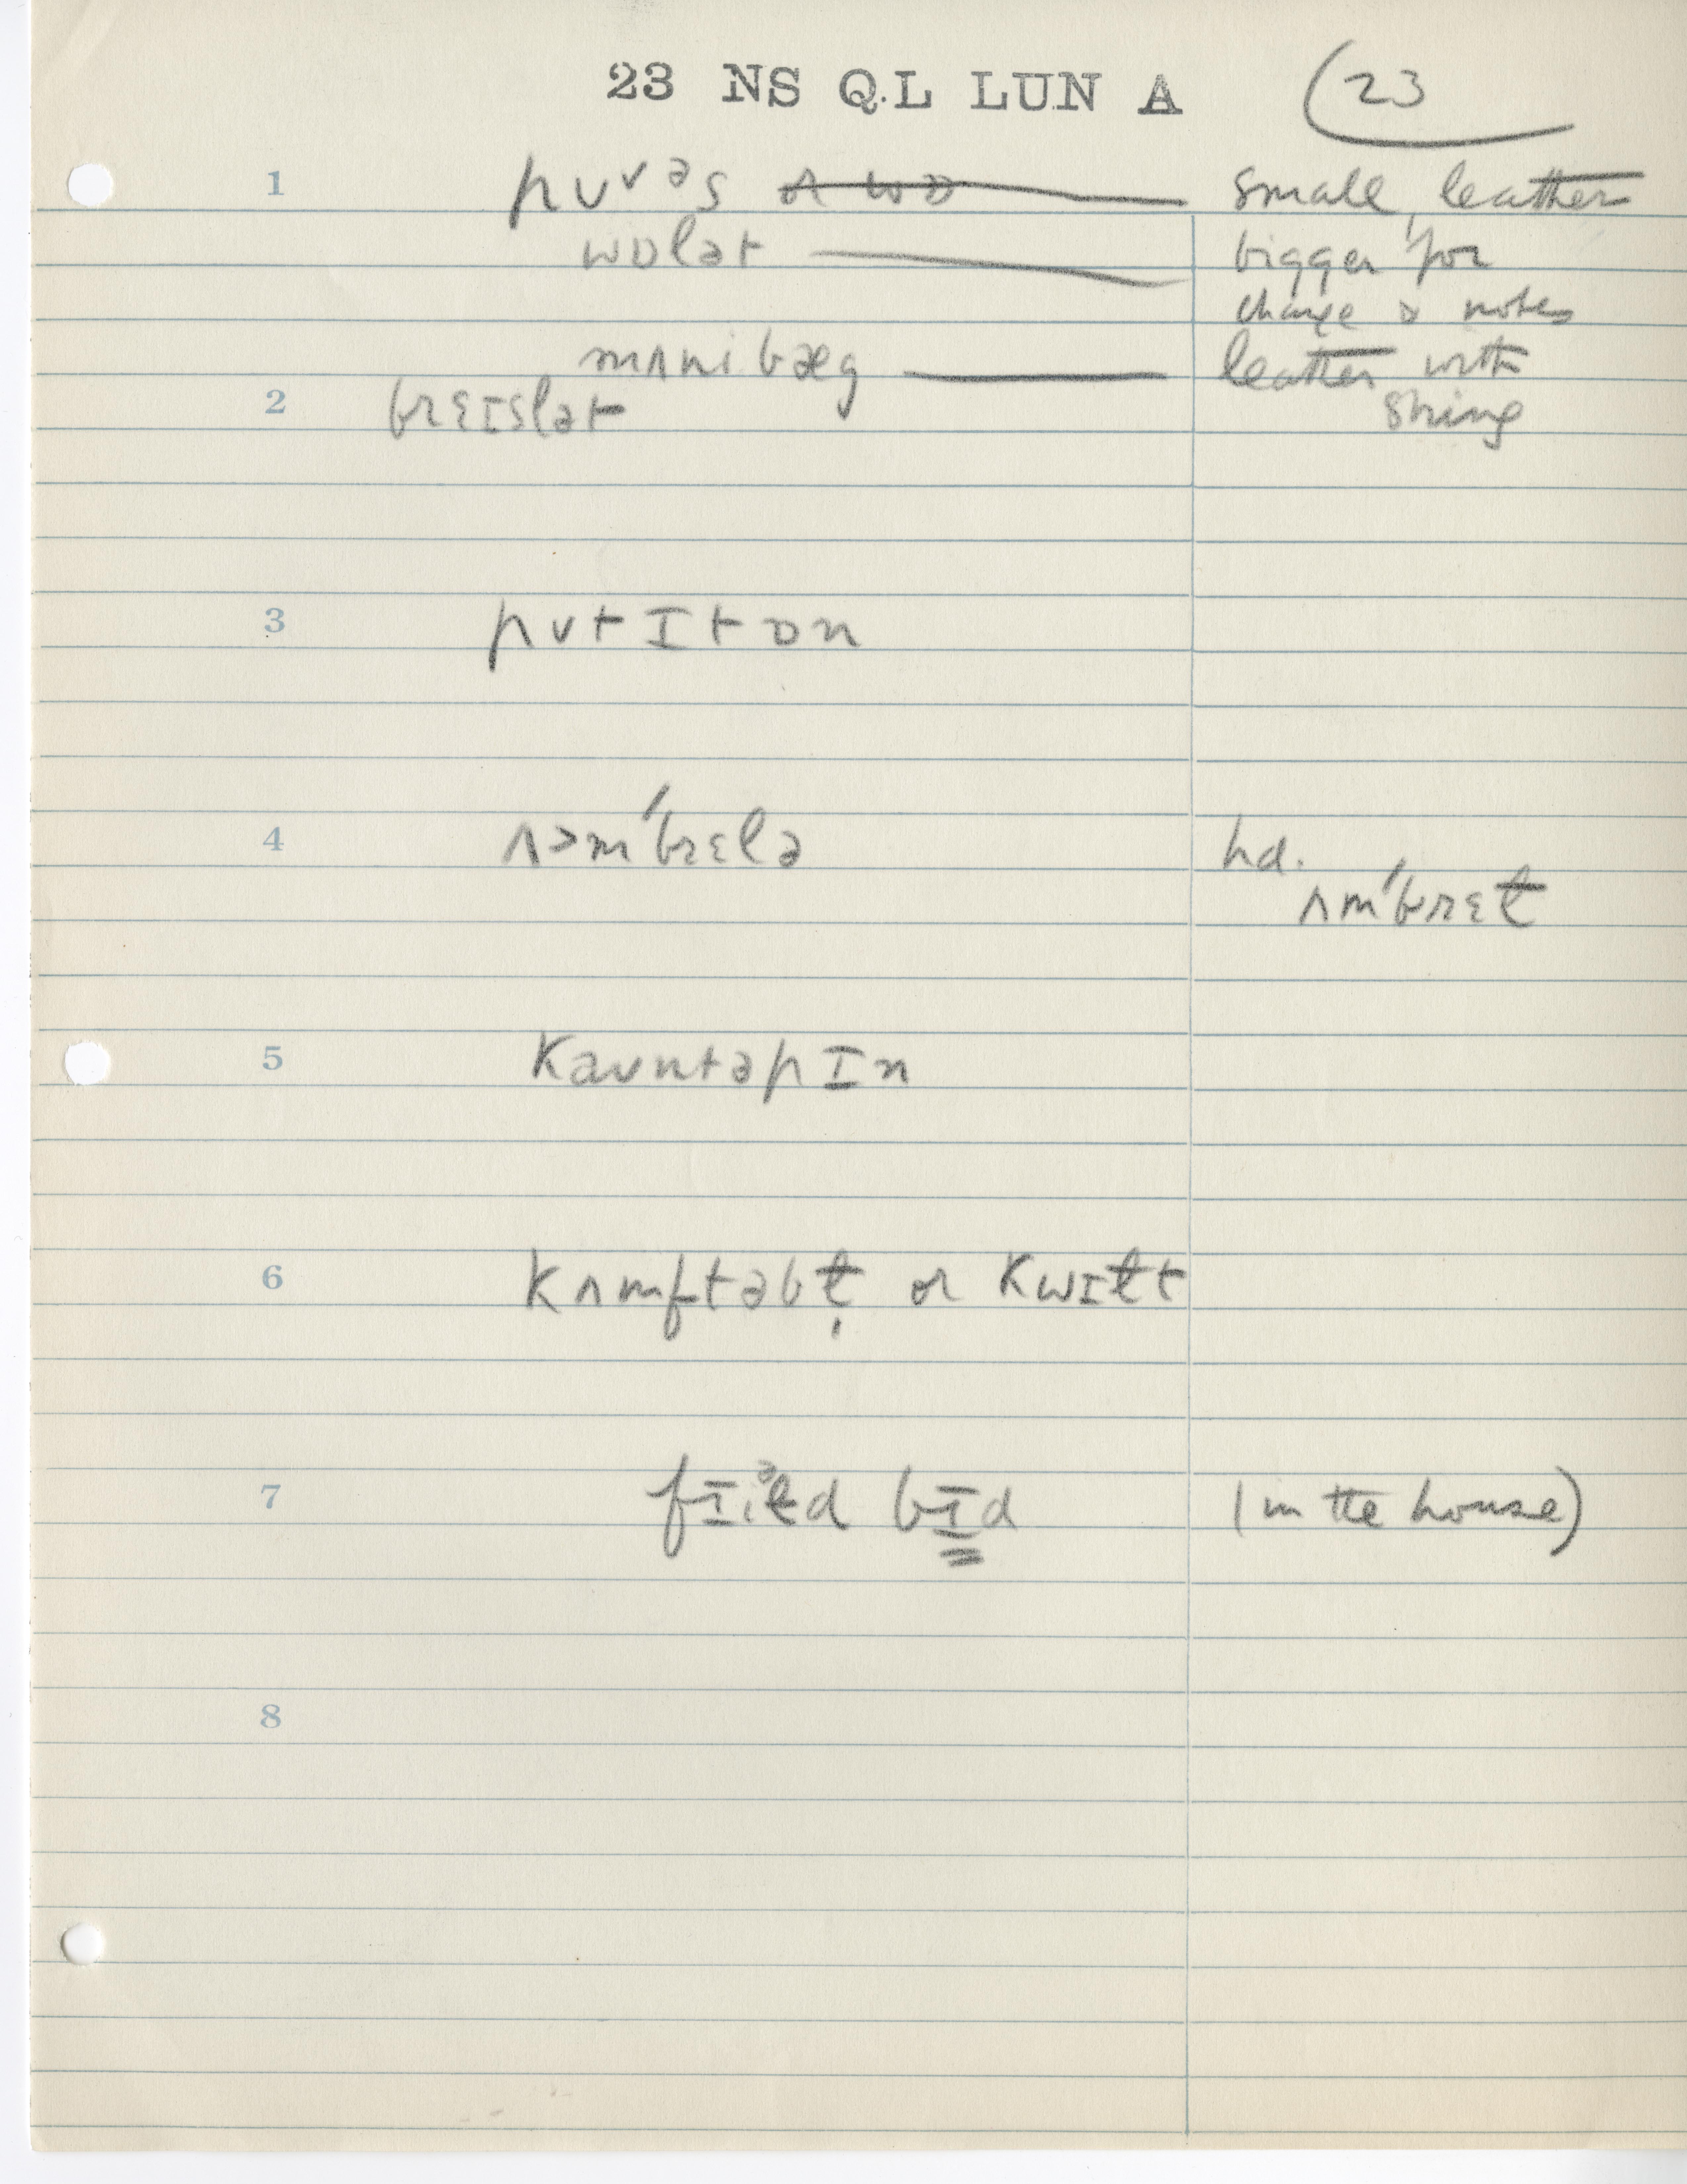 23 NS QL LUN A (23
1 pʊᵛᵊs small, leather
wɒlət bigger for
change & notes
mʌnibæg leather with
string
2 brɛɪslət
3 pʊt ɪt ɒn
4 ʌ>m'brɛlə hd.
ʌm'brɛɫ
5 kaʊntəpɪn
6 kʌmftəbɫ̩ or kwɪɫt
7 bɪd (in the house)
8